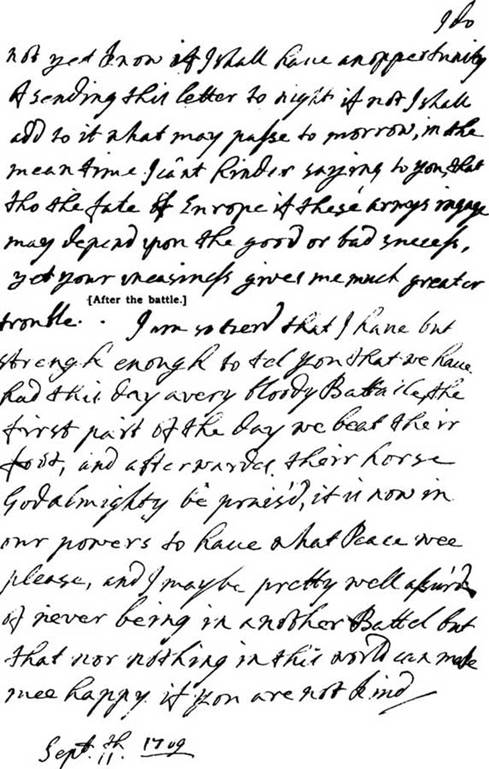 I do
not yet know if I shall have an oppertunity
of sending this letter to night if not I shall
add to it what may passe to morrow, in the
mean time I can't hinder saying to you, that
tho the fate of Europe if these armys ingage
may depend upon the good or bad success,
yet your uneasiness gives me much greater
[After the battle.]
trouble. . I am so tierd that I have but
strengh enough to tel you that we have
had this day a very bloody Battaile, the
first part of the day we beat their
foot, and afterwardes their horse
God almighty be prais'd, it is now in
our powers to have what Peace wee
please, and I may be pretty well assur'd
of never being in another Battel but
that nor nothing in this world can make
mee happy if you are not kind
Sept. 11.th 1709